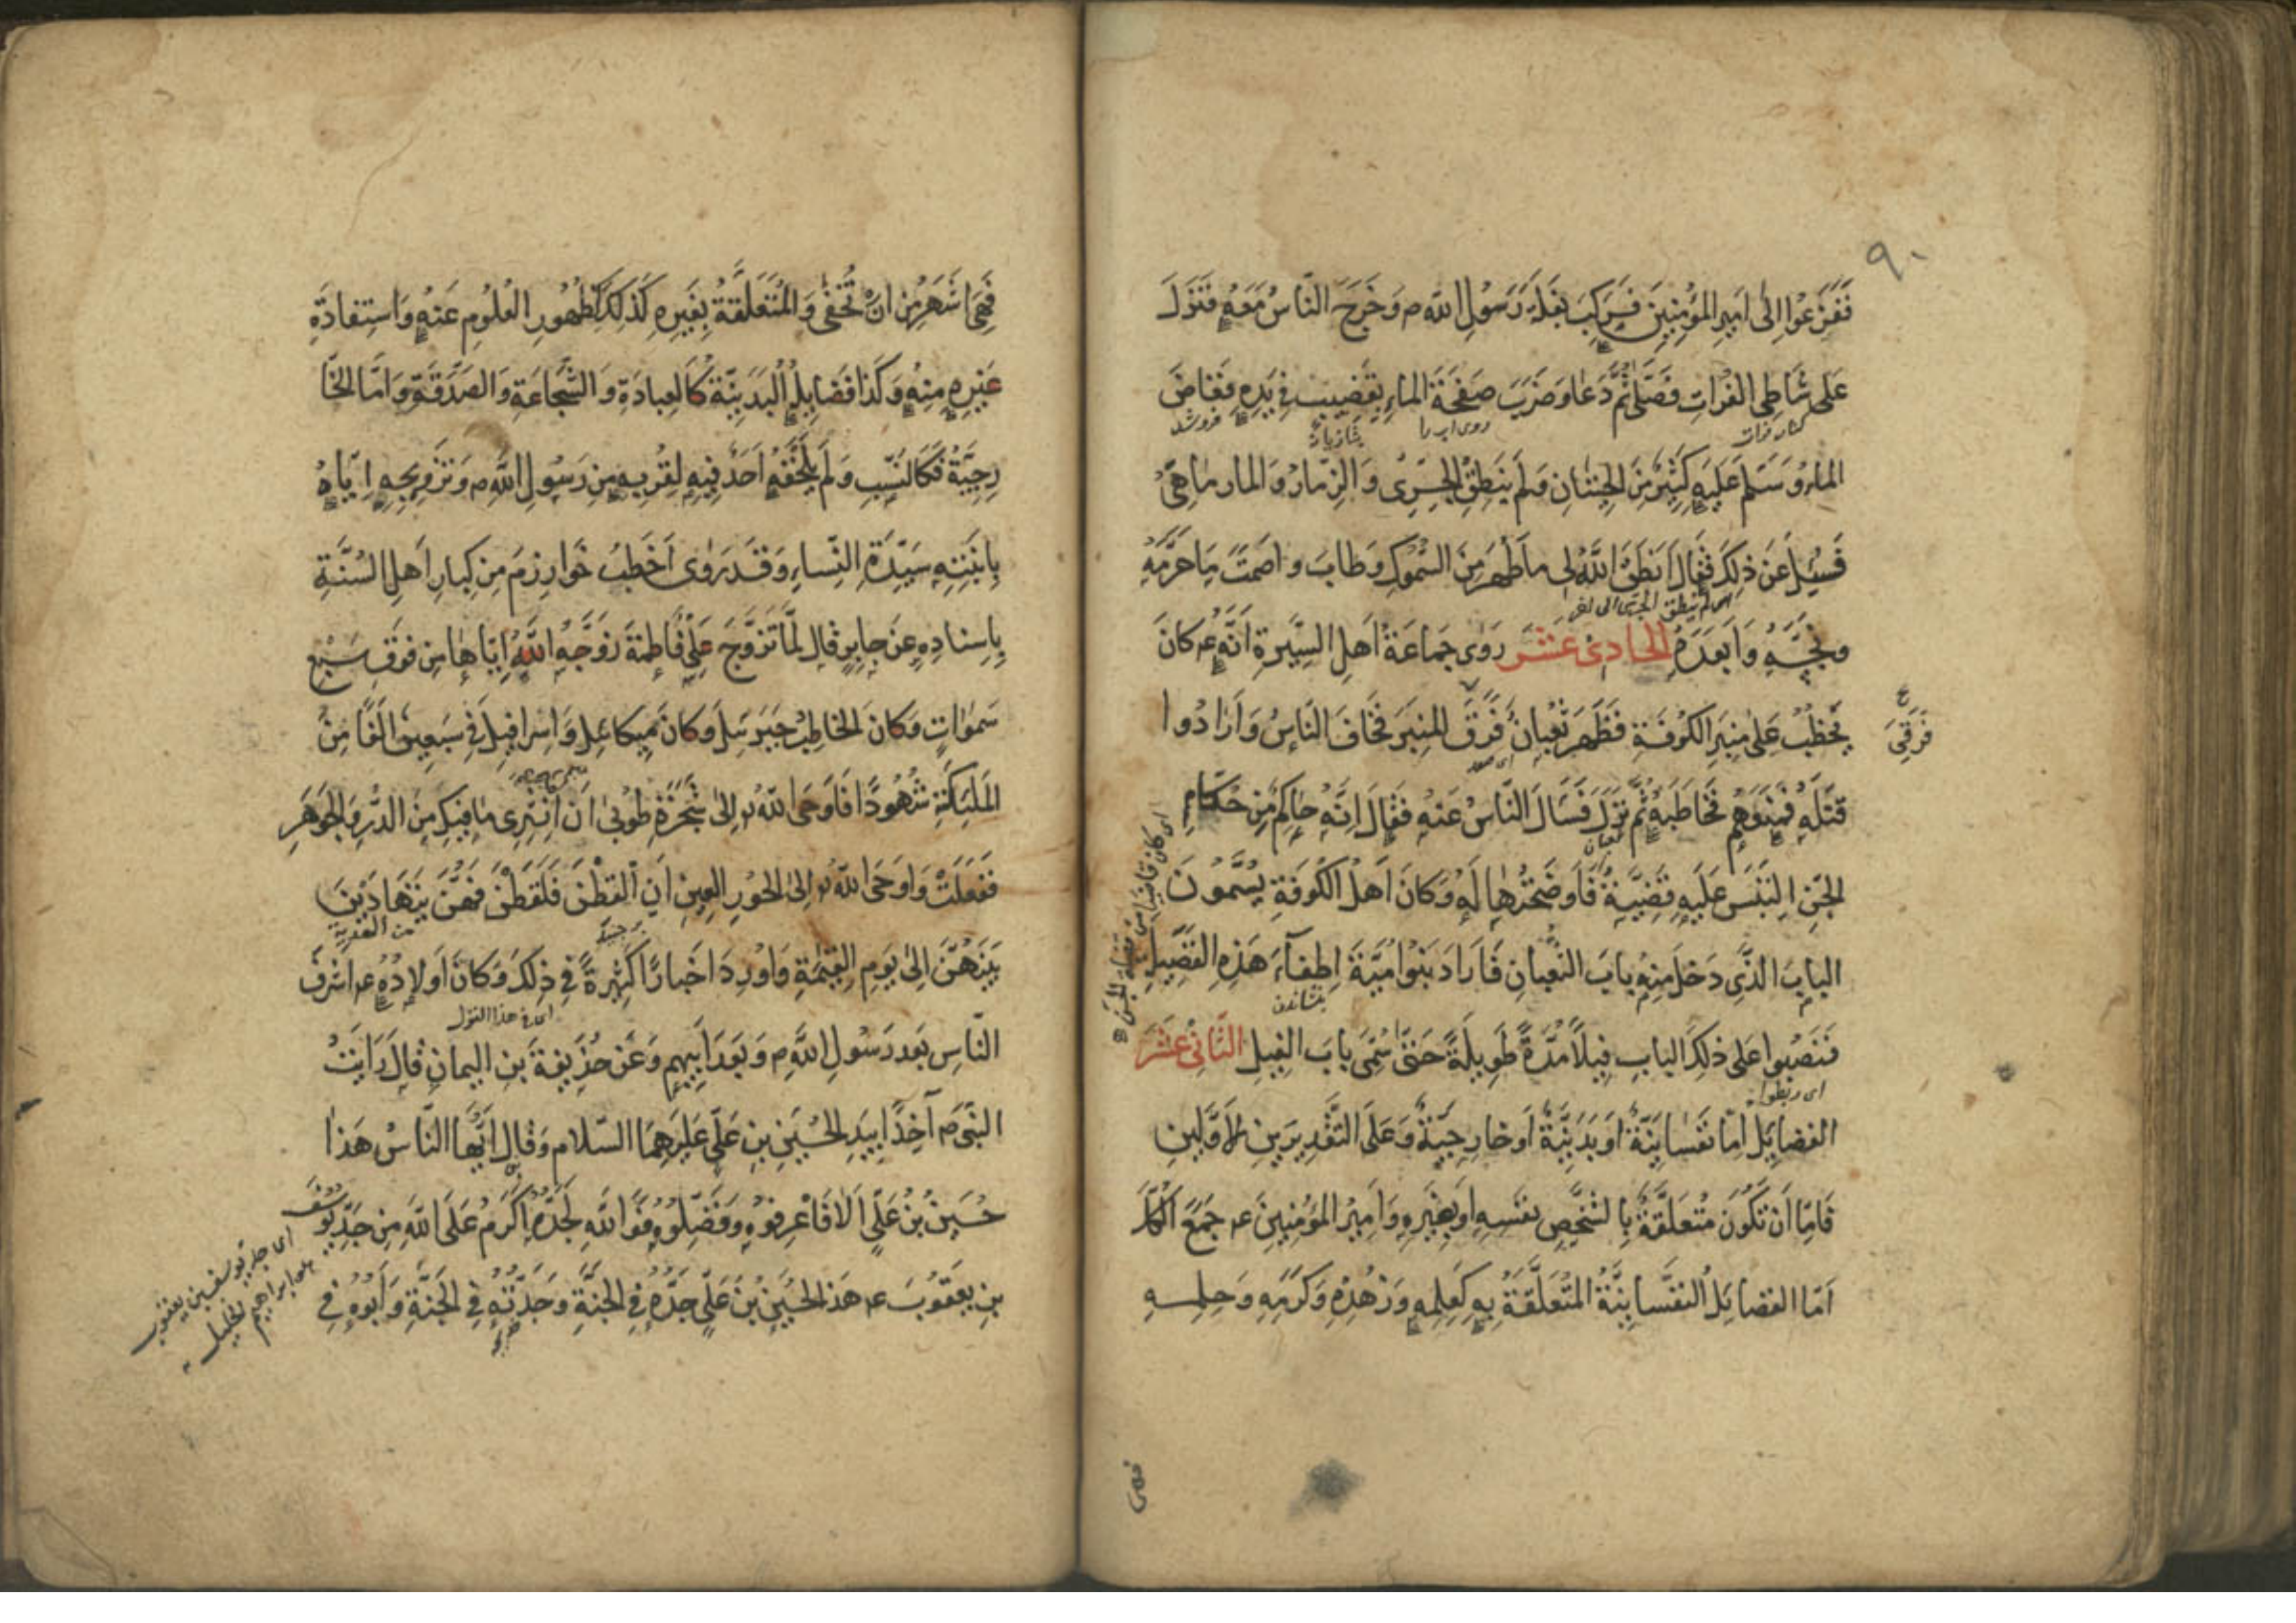 ٩٠
فَفَزَعُوا اِلٰى اَمِيرِ الْمُؤْمِنِينَ فَرَكِبَ بَغْلَةَ رَسُولِ اللّٰهِ ص وَخَرَجَ النَّاسُ مَعَهُ فَنَزَلَ
عَلٰى شَاطِئِ الْفُرَاتِ فَصَلّٰى ثُمَّ دَعَا وَضَرَبَ صَفْحَةَ الْمَاءِ بِقَضِيبٍ فِى يَدِهِ فَغَاضَ
كنار فرات
روى اب را
فرو شد
الْمَاءُ وَسَلَّمَ عَلَيْهِ كَثِيرٌ مِنَ الْحِيتَانِ وَلَمْ يَنْطِقِ الْجِرِّىُّ وَالزِّمَّارُ وَالْمَارْمَاهِىُّ
فَسُئِلَ عَنْ ذٰلِكَ فَقَالَ اَنْطَقَ اللّٰهُ لِى مَا طَهُرَ مِنَ السُّمُوكِ وَطَابَ وَاَصْمَتَ مَا حَرَّمَهُ
وَنَجَّسَهُ وَاَبْعَدَهُ الْحَادِى عَشَرَ رَوٰى جَمَاعَةُ اَهْلِ السِّيرَةِ اَنَّهُ ع كَانَ
يَخْطُبُ عَلٰى مِنْبَرِ الْكُوفَةِ فَظَهَرَ ثُعْبَانٌ فَرَقَ الْمِنْبَرَ فَخَافَ النَّاسُ وَاَرَادُوا
فَرَقِىَ خ
اى صعد
قَتْلَهُ فَمَنَعَهُمْ فَخَاطَبَهُ ثُمَّ نَزَلَ فَسَاَلَ النَّاسُ عَنْهُ فَقَالَ اِنَّهُ حَاكِمٌ مِنْ حُكَّامِ
ثعبان
الْجِنِّ اِلْتَبَسَ عَلَيْهِ قَضِيَّةٌ فَاَوْضَحْتُهَا لَهُ وَكَانَ اَهْلُ الْكُوفَةِ يُسَمُّونَ
الْبَابَ الَّذِى دَخَلَ مِنْهُ بَابَ الثُّعْبَانِ فَاَرَادَ بَنُو اُمَيَّةَ اِطْفَآءَ هٰذِهِ الْفَضِيلَةِ
فَنَصَبُوا عَلٰى ذٰلِكَ الْبَابِ فِيلًا مُدَّةً طَوِيلَةً حَتّٰى سُمِّىَ بَابَ الْفِيلِ الثَّانِى عَشَرَ
اى ربطوا
الْفَضَايِلُ اِمَّا نَفْسَانِيَّةٌ اَوْ بَدَنِيَّةٌ اَوْ خَارِجِيَّةٌ وَعَلَى التَّقْدِيرَيْنِ الْاَوَّلَيْنِ
فَاِمَّا اَنْ تَكُونَ مُتَعَلِّقَةً بِالشَّخْصِ نَفْسِهِ اَوْ بِغَيْرِهِ وَاَمِيرُ الْمُؤْمِنِينَ ع جَمَعَ الْكُلَّ
اَمَّا الْفَضَايِلُ النَّفْسَانِيَّةُ الْمُتَعَلِّقَةُ بِهِ كَعِلْمِهِ وَزُهْدِهِ وَكَرَمِهِ وَحِلْمِهِ
فهى
فَهِىَ اَشْهَرُ مِنْ اَنْ تُخْفٰى وَالْمُتَعَلِّقَةُ بِغَيْرِهِ كَذٰلِكَ كَظُهُورِ الْعُلُومِ عَنْهُ وَاسْتِفَادَةِ
غَيْرِهِ مِنْهُ وَكَذَا فَضَايِلُهُ الْبَدَنِيَّةُ كَالْعِبَادَةِ وَالشَّجَاعَةِ وَالصَّدَقَةِ وَاَمَّا الْخَا
رِجِيَّةُ فَكَالنَّسَبِ وَلَمْ يَلْحَقْهُ اَحَدٌ فِيهِ لِقُرْبِهِ مِنْ رَسُولِ اللّٰهِ ص وَتَزْوِيجِهِ اِيَّاهُ
بِابْنَتِهِ سَيِّدَةِ النِّسَاءِ وَقَدْ رَوٰى اَخْطَبُ خَوَارِزْمَ مِنْ كِبَارِ اَهْلِ السُّنَّةِ
بِاِسْنَادِهِ عَنْ جَابِرٍ قَالَ لَمَّا تَزَوَّجَ عَلِىٌّ فَاطِمَةَ زَوَّجَهُ اللّٰهُ اِيَّاهَا مِنْ فَوْقِ سَبْعِ
سَمٰوَاتٍ وَكَانَ الْخَاطِبُ جَبْرَئِيلَ وَكَانَ مِيكَائِيلُ وَاِسْرَافِيلُ فِى سَبْعِينَ اَلْفًا مِنَ
الْمَلٰئِكَةِ شُهُودًا فَاَوْحَى اللّٰهُ اِلٰى شَجَرَةِ طُوبٰى اَنْ اُنْثُرِى مَا فِيكِ مِنَ الدُّرِّ وَالْجَوْهَرِ
فَفَعَلَتْ وَاَوْحَى اللّٰهُ اِلَى الْحُورِ الْعِينِ اَنِ الْقُطْنَ فَلَقَطْنَ فَهُنَّ يَتَهَادَيْنَ
بَيْنَهُنَّ اِلٰى يَوْمِ الْقِيٰمَةِ وَاَوْرَدَ اَخْبَارًا كَثِيرَةً فِى ذٰلِكَ وَكَانَ اَوْلَادُهُ ع اَشْرَفَ
النَّاسِ بَعْدَ رَسُولِ اللّٰهِ ص وَبَعْدَ اَبِيهِمْ وَعَنْ حُذَيْفَةَ بْنِ الْيَمَانِ قَالَ رَاَيْتُ
النَّبِىَّ ص آخِذًا بِيَدِ الْحُسَيْنِ بْنِ عَلِىٍّ عَلَيْهِمَا السَّلَام وَقَالَ اَيُّهَا النَّاسُ هٰذَا
حُسَيْنُ بْنُ عَلِىٍّ اَلَا فَاعْرِفُوهُ وَفَضِّلُوهُ فَوَاللّٰهِ لَجَدُّهُ اَكْرَمُ عَلَى اللّٰهِ مِنْ جَدِّ يُوسُفَ
بْنِ يَعْقُوبَ ع هٰذَا الْحُسَيْنُ بْنُ عَلِىٍّ جَدُّهُ فِى الْجَنَّةِ وَجَدَّتُهُ فِى الْجَنَّةِ وَاَبُوهُ فِى
اى جد يوسف بن يعقوب
ابراهيم الخليل